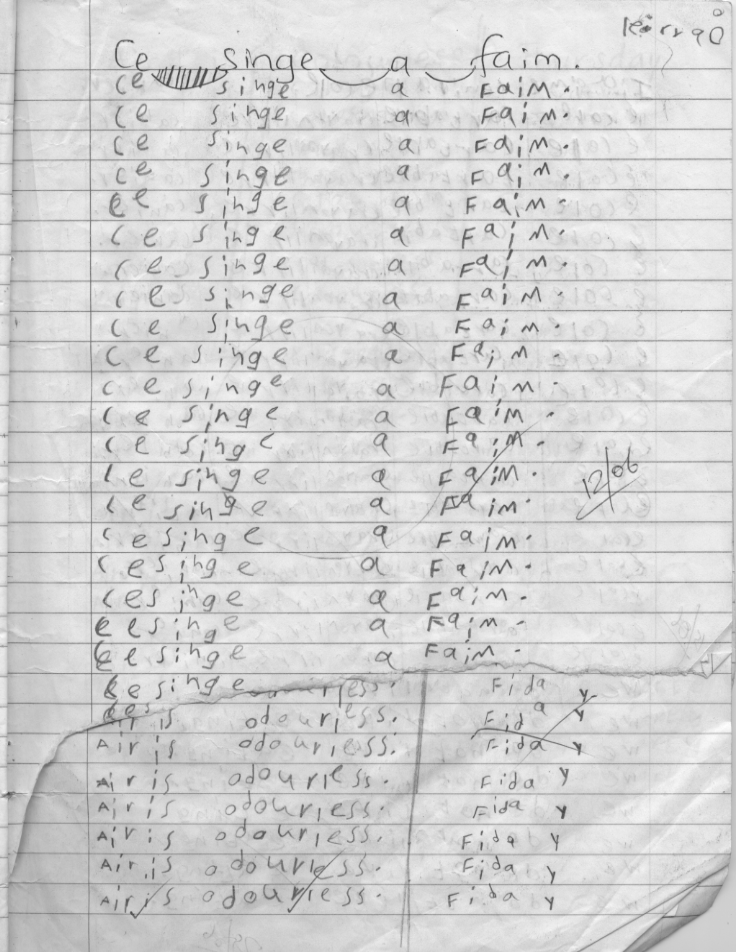 Ce singe a faim.
Ce singe a Faim.
Ce singe a Faim.
Ce singe a Faim.
Ce singe a Faim.
Ce singe a Faim.
Ce singe a Faim.
Ce singe a Faim.
Ce singe a Faim.
Ce singe a Faim.
Ce singe a Faim.
Ce singe a Faim.
Ce singe a Faim.
Ce singe a Faim.
Ce singe a Faim. 12/06
Ce singe a Faim.
Ce singe a Faim.
Ce singe a Faim.
Ce singe a Faim.
Ce singe a Faim.
Ce singe a Faim.
Ce singe Fida
Air is odourless. Fida y
Air is odourless. Fida y
Air is odourless. Fida y
Air is odourless. Fida y
Air is odourless. Fida y
Air is odourless. Fida y
Air is odourless. Fida y